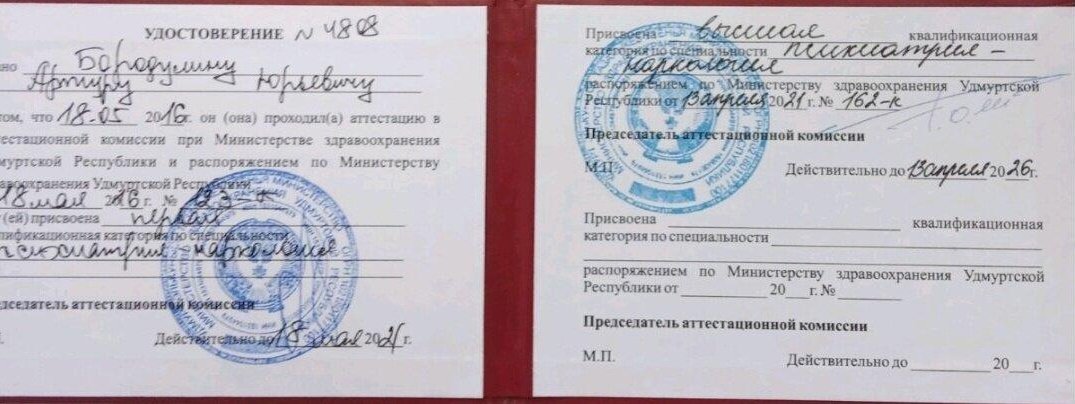 УДОСТОВЕРЕНИЕ № 4808
но Бородулину
Артуру Юрьевичу
том, что 18.05 2016г. он (она) проходил(а) аттестацию в
тестационной комиссии при Министерстве здравоохранения
муртской Республики и распоряжением по Министерству
авоохранения Удмуртской Республики
18 мая 2016г. №
(ей) присвоена первая
лификационная категория по специальности
психиатрия наркология
едседатель аттестационной комиссии
Действительно до 18 мая 2021г.
Присвоена высшая квалификационная
категория по специальности психиатрия –
наркология
распоряжением по Министерству здравоохранения Удмуртской
Республики от 13 апреля 2021г. № 162-к
Председатель аттестационной комиссии
М.П. Действительно до 13 апреля 2026г.
Присвоена квалификационная
категория по специальности
распоряжением по Министерству здравоохранения Удмуртской
Республики от 20 г. №
Председатель аттестационной комиссии
М.П. Действительно до 20 г.